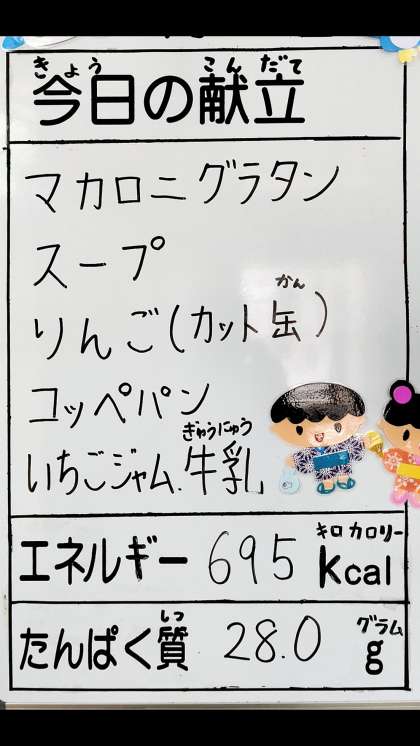 きょう こんだて
今日の献立
マカロニグラタン
スープ
かん
りんご(カット缶)
コッペパン
ぎゅうにゅう
いちごジャム.牛乳
キロカロリー
エネルギー 695 kcal
しつ グラム
たんぱく質 28.0 g